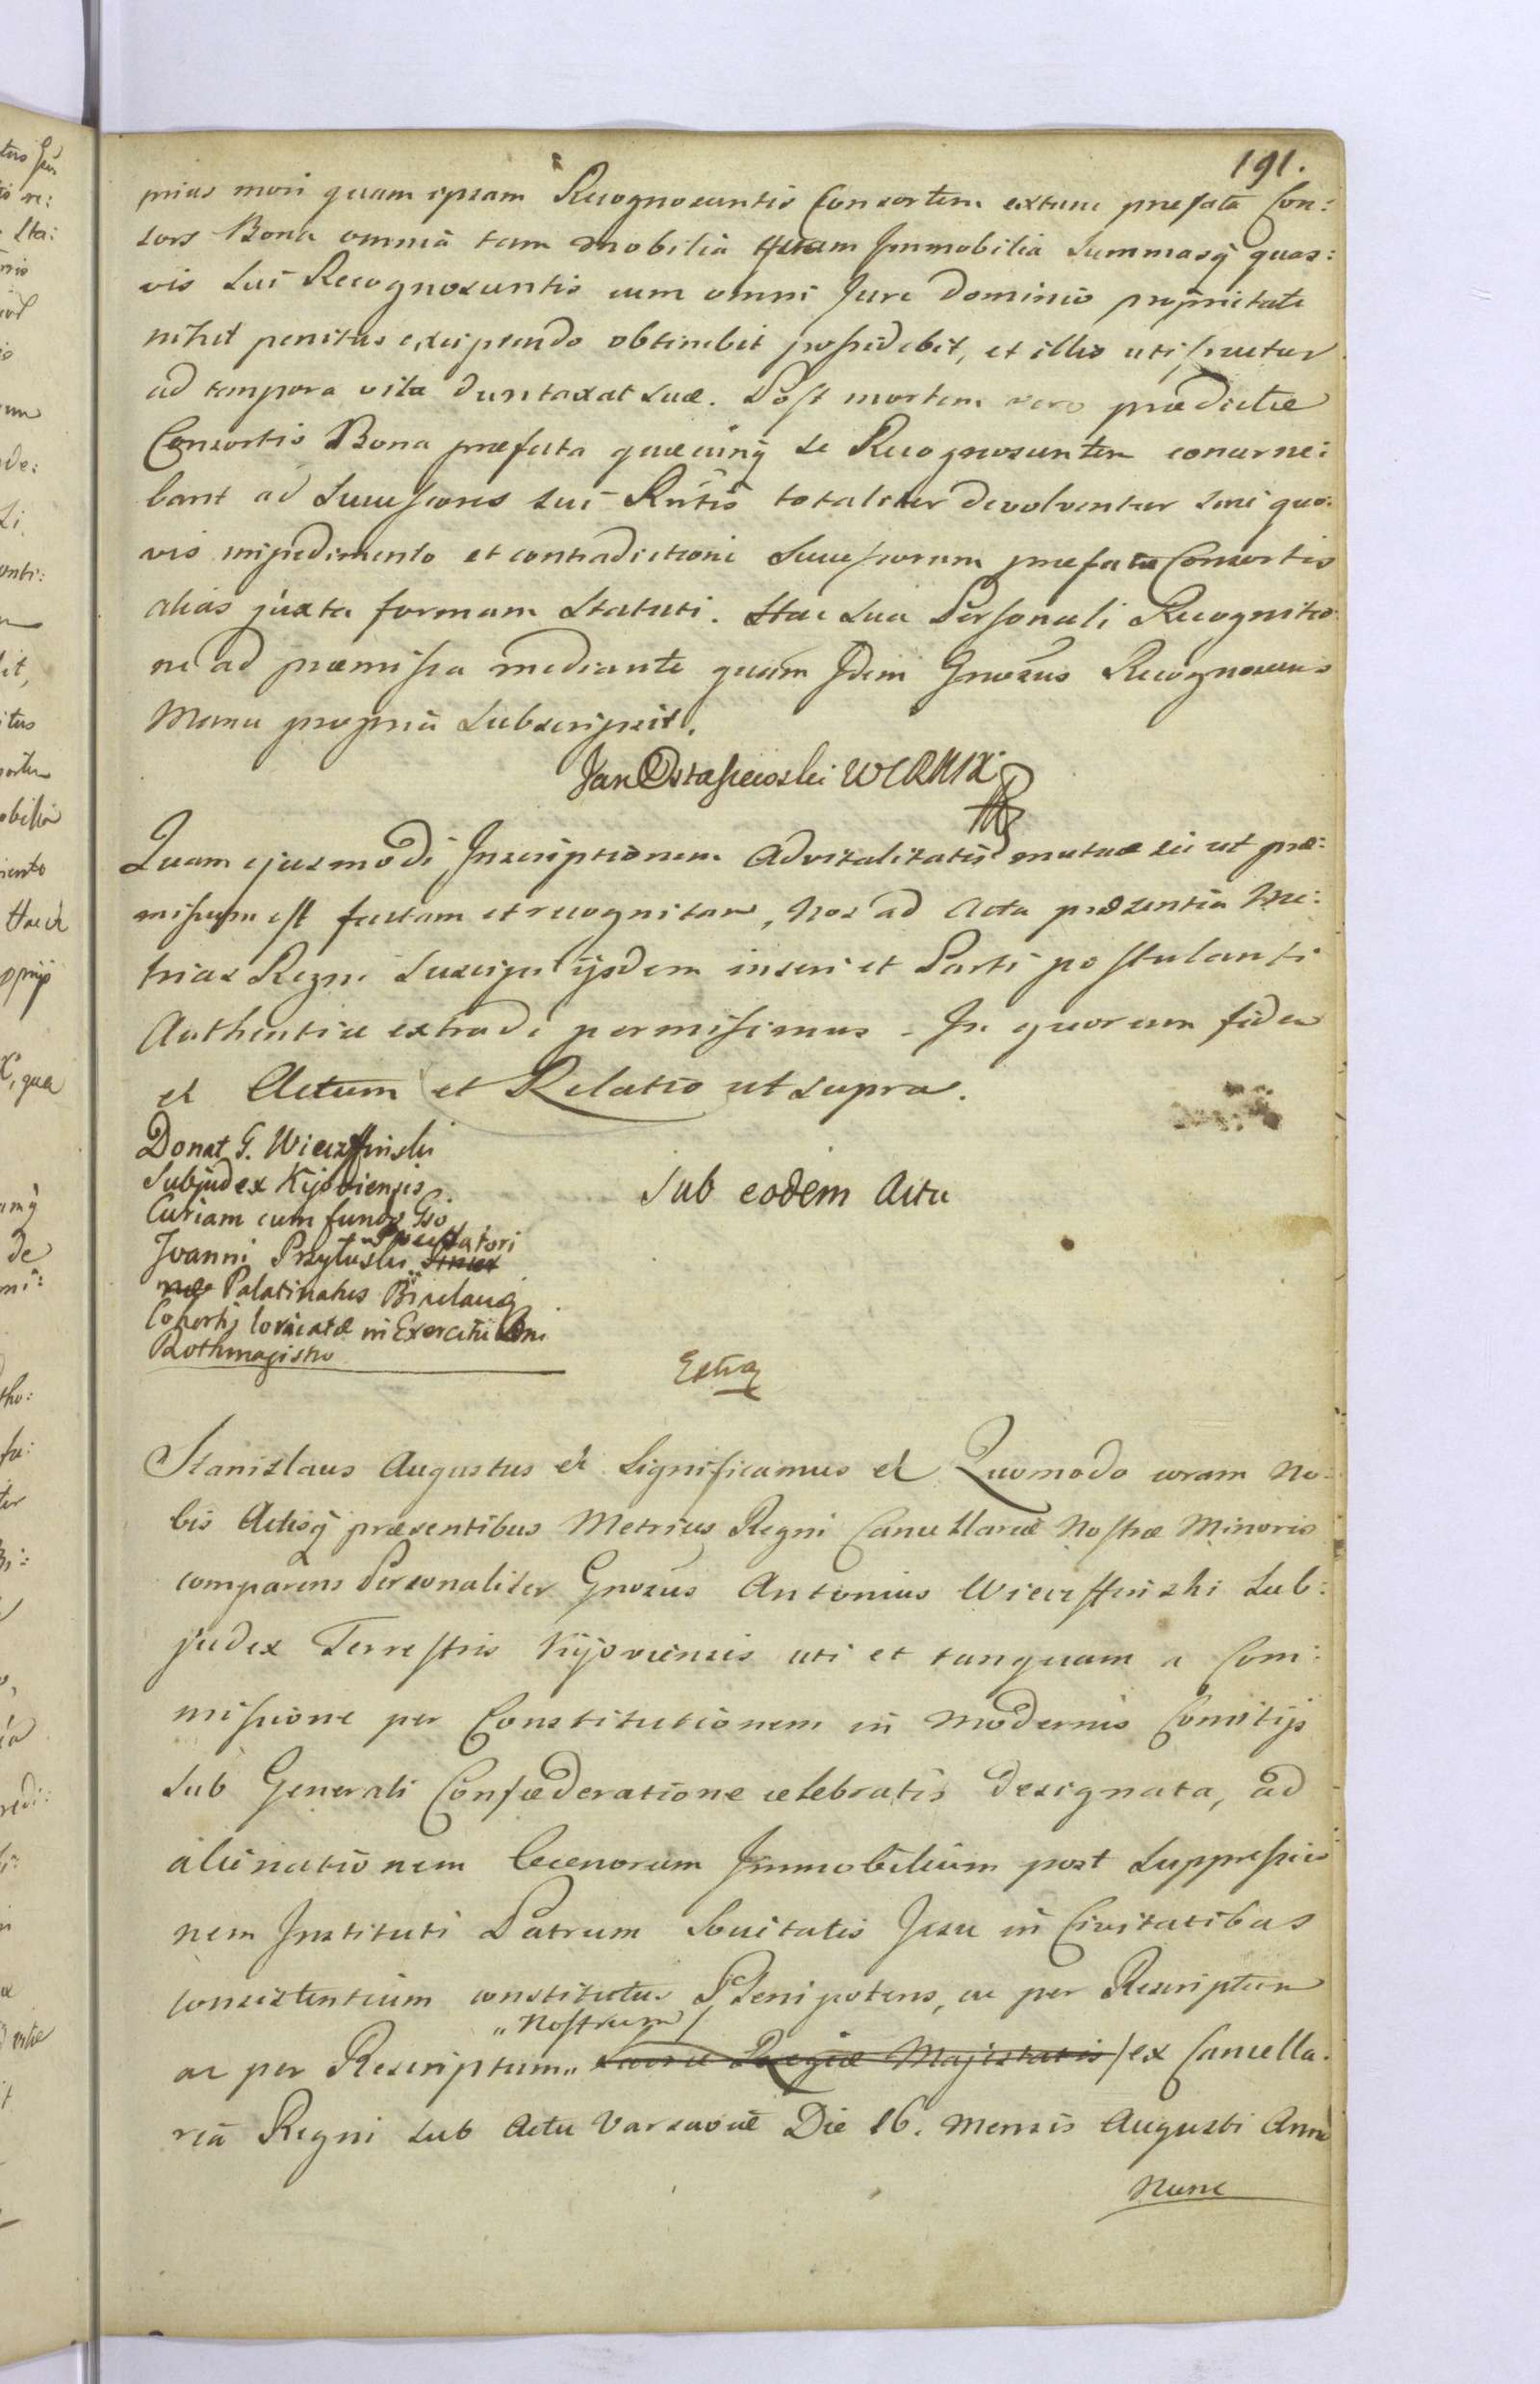 191.
prius mori quam ipsam Recognoscentis Consortem extunc præfata Con:
sors Bona omnia tam Mobilia quam Immobilia Summasq quas:
vis Sui Recognoscentis cum omni Jure Dominio proprietate
nihil penitus excipiendo obtinebit possidebit, et illis uti fruetur
ad tempora vitæ duntaxat suæ. Post mortem vero prædictæ
Consortis Bona præfata quæcunq se Recognoscentem concerne:
bant ad Successores sui Rntis totaliter devolventur sine quo:
vis impedimento et contradictione Successorum præfatæ Consortis
alias juxta formam Statuti. Hac sua Personali Recognitio
ne ad præmissa mediante quam Idem Gnosus Recognoscens
Manu propria Subscripsit.
Jan Ostaszewski WCRMX
Quam ejusmodi Inscriptionem Advitalitatis mutuæ sic ut præ:
missum est factam et recognitam, Nos ad Acta præsentia Me:
trices Regni suscipi ijsdem inseri et Parti postulanti
Authentice extradi permisimus. In quorum fidem
et Actum et Relatio ut supra.
Donat G. Wierzffinski
Subjudex Kijoviensis
Curiam cum fundo Gso
Joanni Przyłuski
Palatinatus Braclaviæ
Cohortis loricatæ in Exercitu
Rothmagistro
Sub eodem Actu
Extra
Stanislaus Augustus et Significamus et Quomodo coram No:
bis Actisq præsentibus Metrices Regni Cancellariæ Nostræ Minoris
comparens Personaliter Gnosus Antonius Wierzffinski Sub:
judex Terrestris Kijoviensis uti et tanquam a Com:
missione per Constitutionem in modernis Comitijs
sub Generali Confæderatione celebratis designata, ad
alienationem Immobilium post Suppressio
nem Instituti Patrum Societatis Jesu in Civitatibus
consistentium constitutus Plenipotens, ac per Rescriptum
„Nostrum/
ac per Rescriptum„ Sacræ Regiæ Majestatis / ex Cancella:
ria Regni sub Actu Varsaviæ Die 16. Mensis Augusti Anni
Nunc